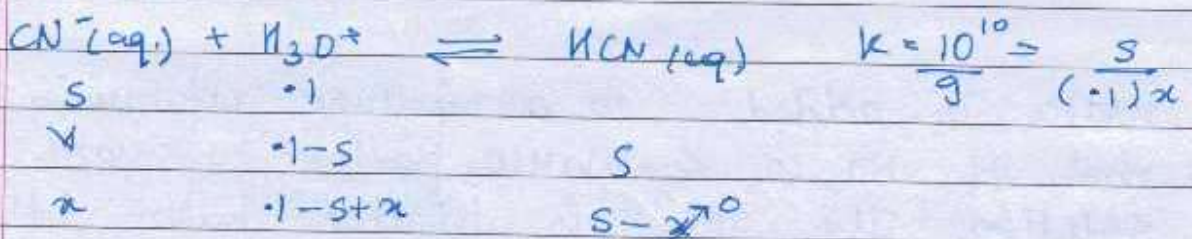 CN⁻(aq.) + H₃O⁺ ⇌ HCN (aq) K = 10¹⁰/9 = s/(·1)x
s ·1
·1-s s
x ·1-s+x s-x↗0